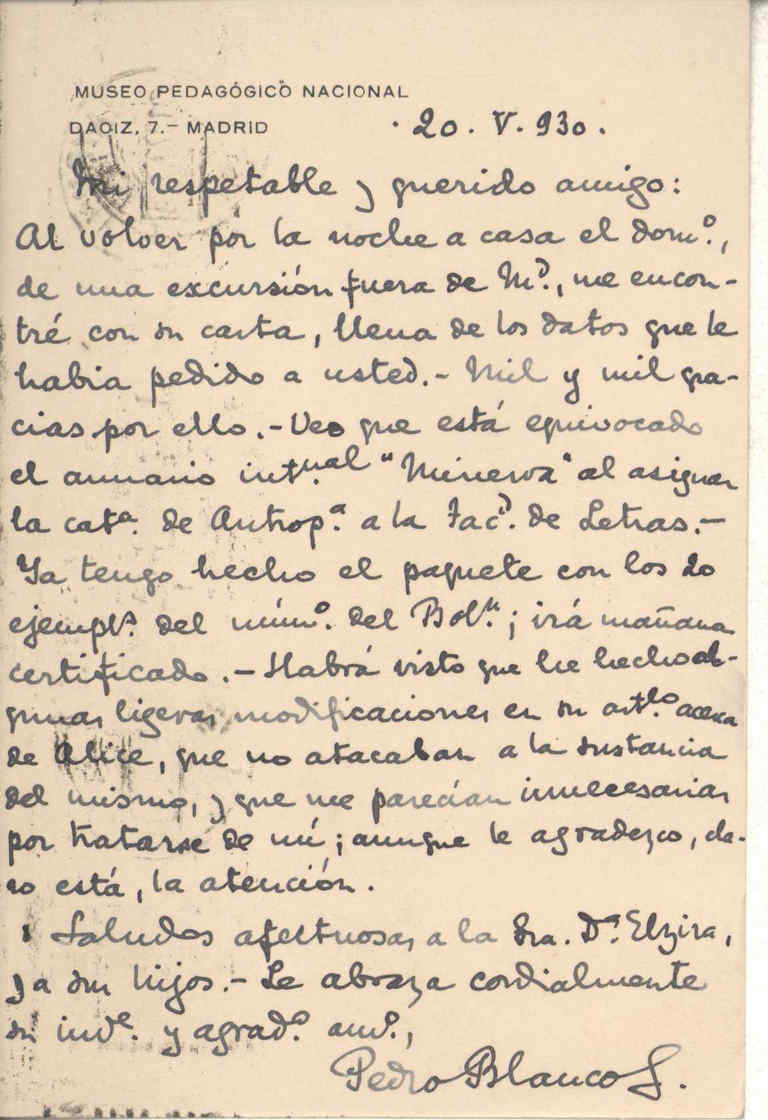 MUSEO PEDAGÓGICO NACIONAL
DAOIZ, 7.- MADRID
· 20 . V. 930 .
Mi respetable y querido amigo:
Al volver por la noche a casa el domº.,
de una excursión fuera de Md., me encon-
tré con su carta, llena de los datos que le
habia pedido a usted.- Mil y mil gra-
cias por ello.- Veo que está equivocado
el anuario intnal "Minerva" al asignar
la catª. de Antropª. a la Facd. de Letras.-
Ya tengo hecho el paquete con los 20
ejempls. del númº. del Boln.; irá mañana
certificado.- Habrá visto que he hecho al-
gunas ligeras modificaciones en su artlº. acerca
de Alice, que no atacaban a la sustancia
del mismo, y que me parecían innecesarias
por tratarse de mí; aunque le agradezco, cla-
ro está, la atención.
Saludos afectuosos a la Sra. Dª. Elzira,
y a sus hijos.- Le abraza cordialmente
su y agradº. amº.,
Pedro Blanco S.